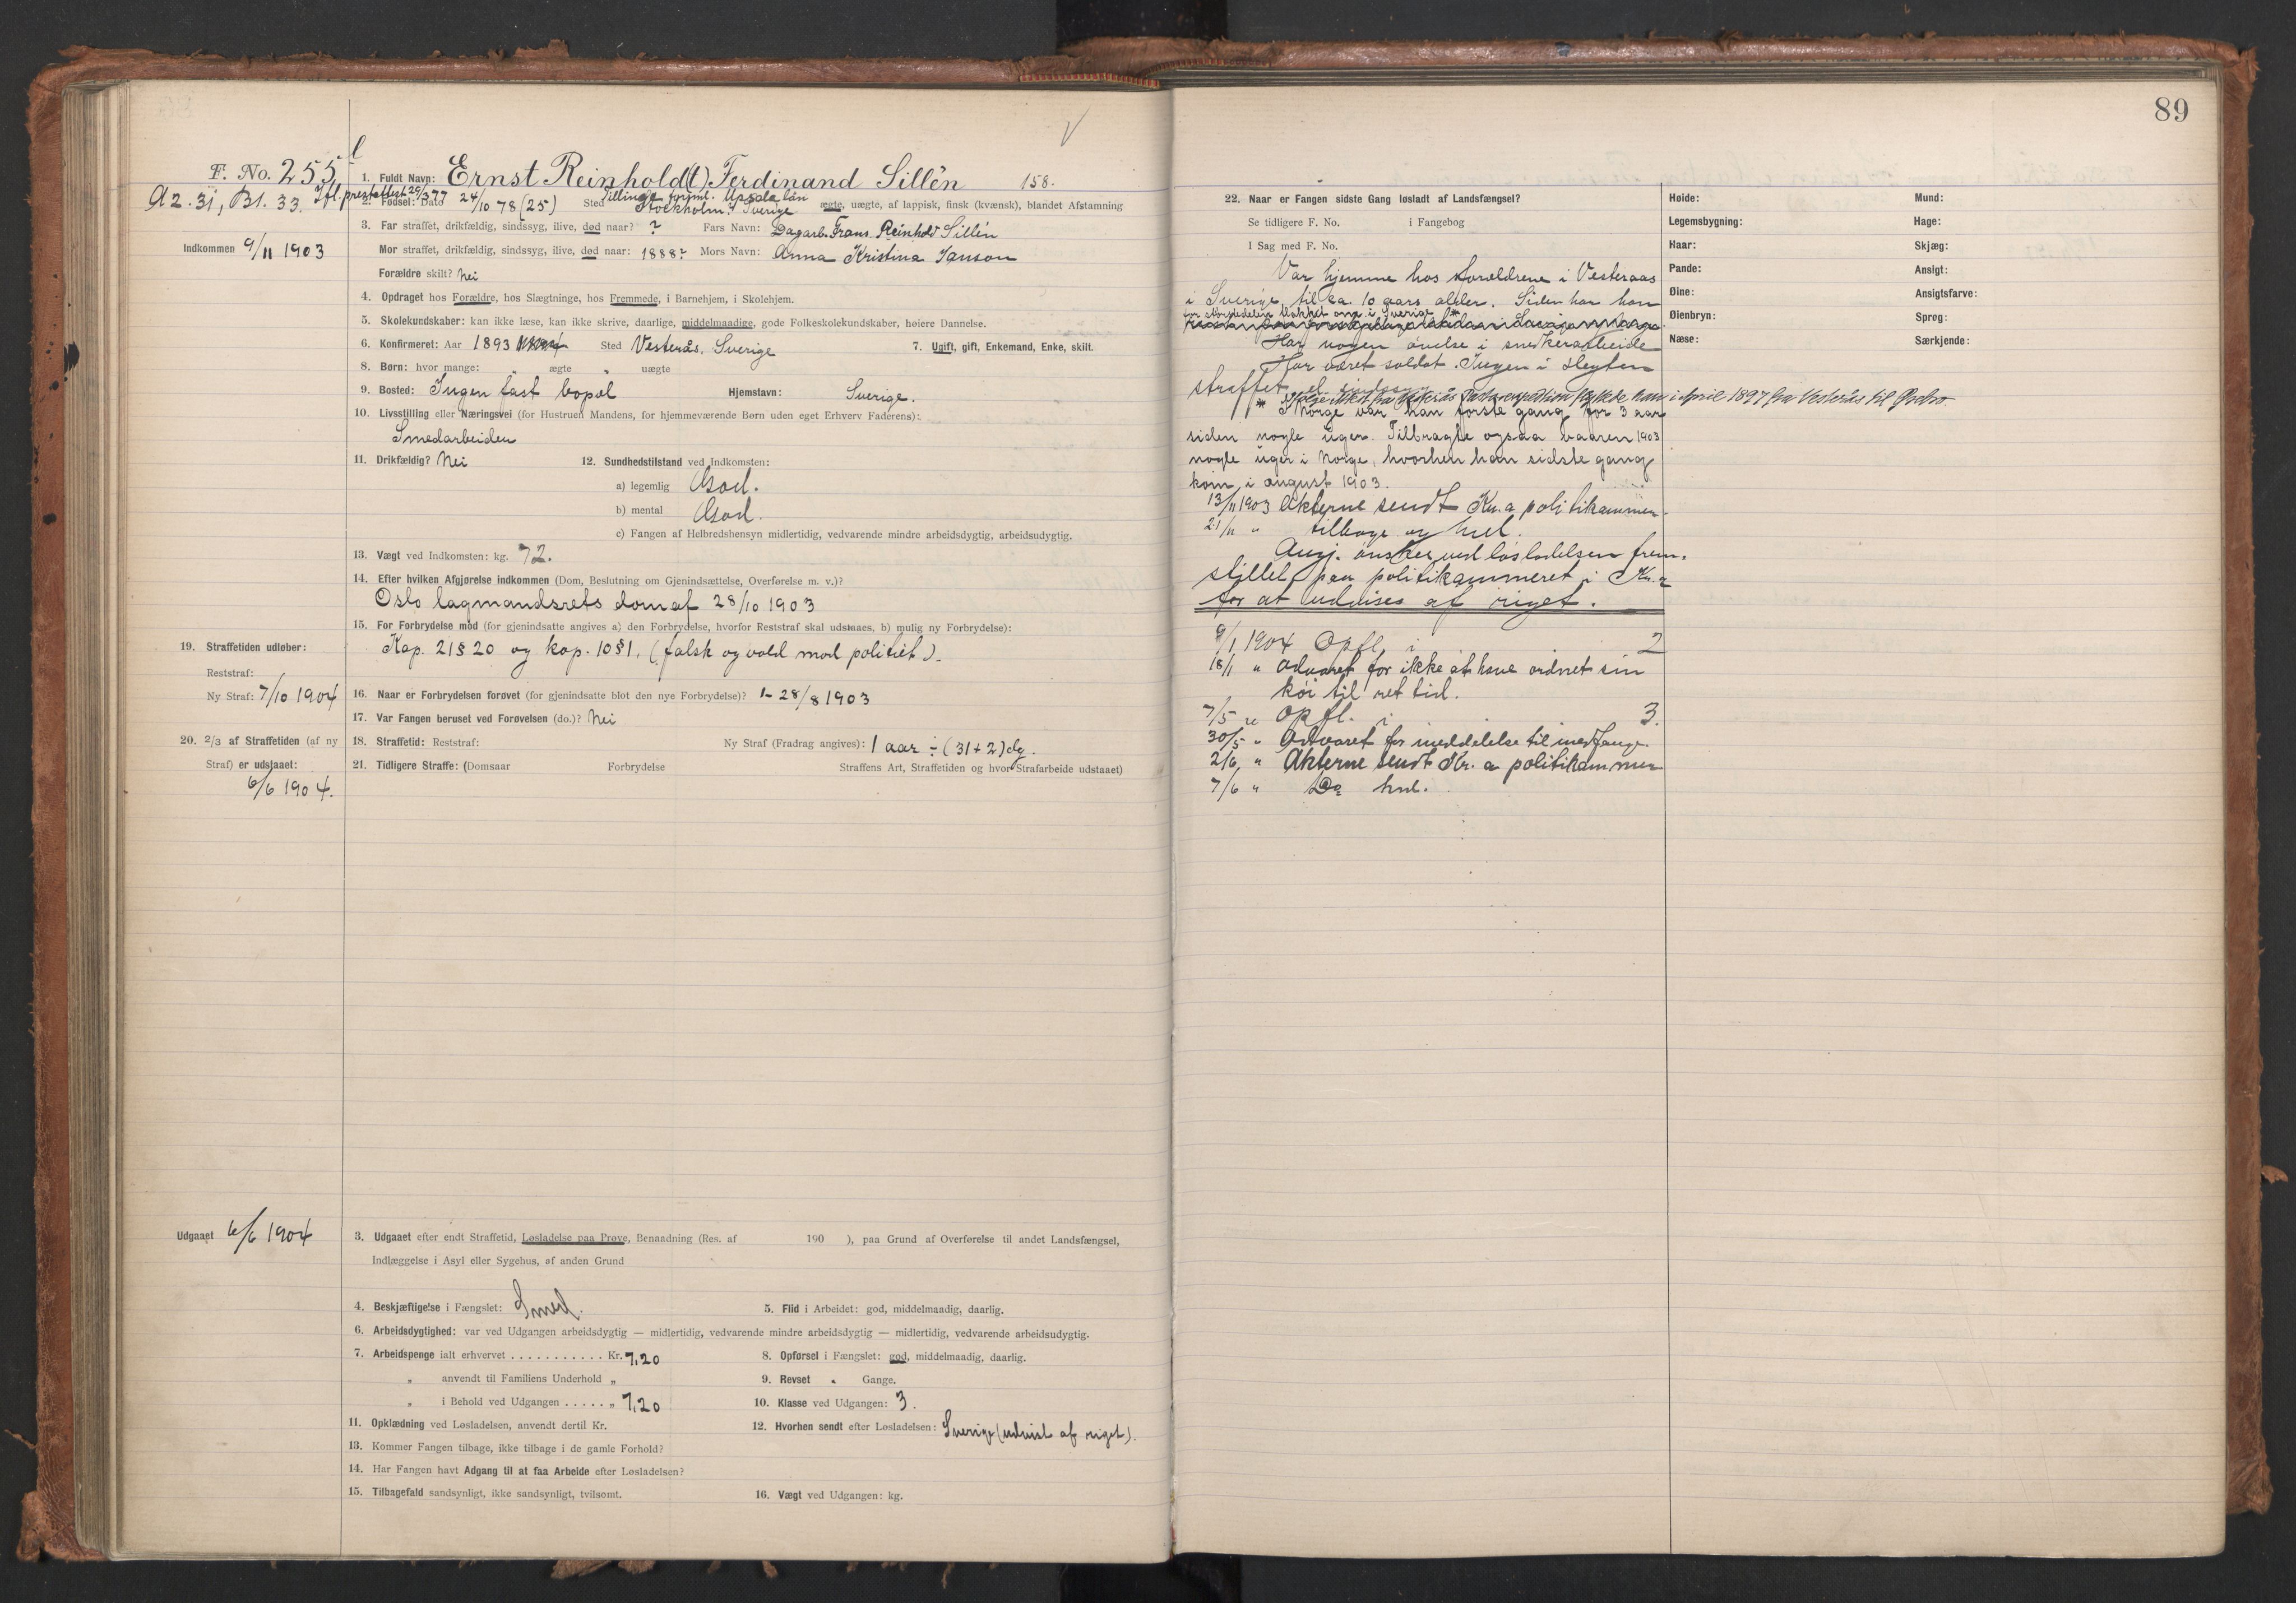 89
F. No. 255
A 2. 31, Bl. 33.
1. Fuldt Navn: Ernst Reinhold(t) Ferdinand Sillén 158.
Ifl. prestattest 29/3 97
Tillinge forsml. Upsala län
2. Fødsel: Dato 24/10 78 (25) Sted Stockholm? Sverige ægte, uægte, af lappisk, finsk (kvænsk), blandet Afstamning
Indkommen 9/11 1903
3. Far straffet, drikfældig, sindssyg, ilive, død naar? ? Fars Navn: Dagarb. Frans Reinhold Sillén
Mor straffet, drikfældig, sindssyg, ilive, død naar: 1888? Mors Navn: Anna Kristina Janson
Forældre skilt? Nei
4. Opdraget hos Forældre, hos Slægtninge, hos Fremmede, i Barnehjem, i Skolehjem.
5. Skolekundskaber: kan ikke læse, kan ikke skrive, daarlige, middelmaadige, gode Folkeskolekundskaber, høiere Dannelse.
6. Konfirmeret: Aar 1893 Sted Vesterås, Sverige 7. Ugift, gift, Enkemand, Enke, skilt.
8. Børn: hvor mange: " ægte " uægte
9. Bosted: Ingen fast bopæl Hjemstavn: Sverige.
10. Livsstilling eller Næringsvei (for Hustruen Mandens, for hjemmeværende Børn uden eget Erhverv Faderens):
Smedarbeider
11. Drikfældig? Nei 12. Sundhedstilstand ved Indkomsten:
a) legemlig God.
b) mental God.
c) Fangen af Helbredshensyn midlertidig, vedvarende mindre arbeidsdygtig, arbeidsudygtig.
13. Vægt ved Indkomsten: kg. 72.
14. Efter hvilken Afgjørelse indkommen (Dom, Beslutning om Gjenindsættelse, Overførelse m. v.)?
Oslo lagmandsrets dom af 28/10 1903
15. For Forbrydelse mod (for gjenindsatte angives a) den Forbrydelse, hvorfor Reststraf skal udstaaes, b) mulig ny Forbrydelse):
Kap. 21 § 20 og kap. 10 § 1. (falsk og vold mod politiet).
19. Straffetiden udløber:
Reststraf:
Ny Straf: 7/10 1904
16. Naar er Forbrydelsen forøvet (for gjenindsatte blot den nye Forbrydelse)? 1- 28/8 1903
17. Var Fangen beruset ved Forøvelsen (do.)? Nei
20. 2/3 af Straffetiden (af ny Straf) er udstaaet:
6/6 1904.
18. Straffetid: Reststraf: Ny Straf (Fradrag angives): 1 aar ÷ (31 + 2) dg.
21. Tidligere Straffe: (Domsaar Forbrydelse Straffens Art, Straffetiden og hvor Strafarbeide udstaaet)
Udgaaet 6/6 1904
3. Udgaaet efter endt Straffetid, Løsladelse paa Prøve, Benaadning (Res. af 190 ), paa Grund af Overførelse til andet Landsfængsel,
Indlæggelse i Asyl eller Sygehus, af anden Grund
4. Beskjæftigelse i Fængslet: Smed. 5. Flid i Arbeidet: god, middelmaadig, daarlig.
6. Arbeidsdygtighed: var ved Udgangen arbeidsdygtig — midlertidig, vedvarende mindre arbeidsdygtig — midlertidig, vedvarende arbeidsudygtig.
7. Arbeidspenge ialt erhvervet . . . . . . . . . . . Kr. 7,20 8. Opførsel i Fængslet: god, middelmaadig, daarlig.
" anvendt til Familiens Underhold " 9. Revset " Gange.
" i Behold ved Udgangen . . . . . " 7,20 10. Klasse ved Udgangen: 3.
11. Opklædning ved Løsladelsen, anvendt dertil Kr. 12. Hvorhen sendt efter Løsladelsen: Sverige (udvist af riget).
13. Kommer Fangen tilbage, ikke tilbage i de gamle Forhold?
14. Har Fangen havt Adgang til at faa Arbeide efter Løsladelsen?
15. Tilbagefald sandsynligt, ikke sandsynligt, tvilsomt. 16. Vægt ved Udgangen: kg.
22. Naar er Fangen sidste Gang løsladt af Landsfængsel?
Se tidligere F. No. i Fangebog
I Sag med F. No.
Var hjemme hos forældrene i Vesteraas
i Sverige til ca. 10 aars alder. Siden har han
for størstedelen flakket om i Sverige *
Har nogen øvelse i snedkerarbeide
Har været soldat. Ingen i slegten
straffet el. sindssyg
Ifølge Attest fra Vesterås Pastorsexpedition flyttede han i April 1897 fra Vesterås til
* I Norge var han første gang for 3 aar
siden nogle uger. Tilbragte ogsaa vaaren 1903
nogle uger i Norge, hvorhen han sidste gang
kom i august 1903.
13/11 1903 Akterne sendt Kr.a politikammer.
21/11 " tilbage og hid.
Angj. ønskes ved løsladelsen frem-
stillet paa politikammeret i Kr.a
for at udvises af riget.
9/1 1904 Opfl. i 2
18/1 " Advaret for ikke at have ordnet sin
køi til ret tid.
7/5 " Opfl. i 3.
30/5 " Advaret for meddelelse til medfange.
2/6 " Akterne sendt Kr. a politikammer
7/6 " Do hid.
Høide: Mund:
Legemsbygning: Hage:
Haar: Skjæg:
Pande: Ansigt:
Øine: Ansigtsfarve:
Øienbryn: Sprog:
Næse: Særkjende: